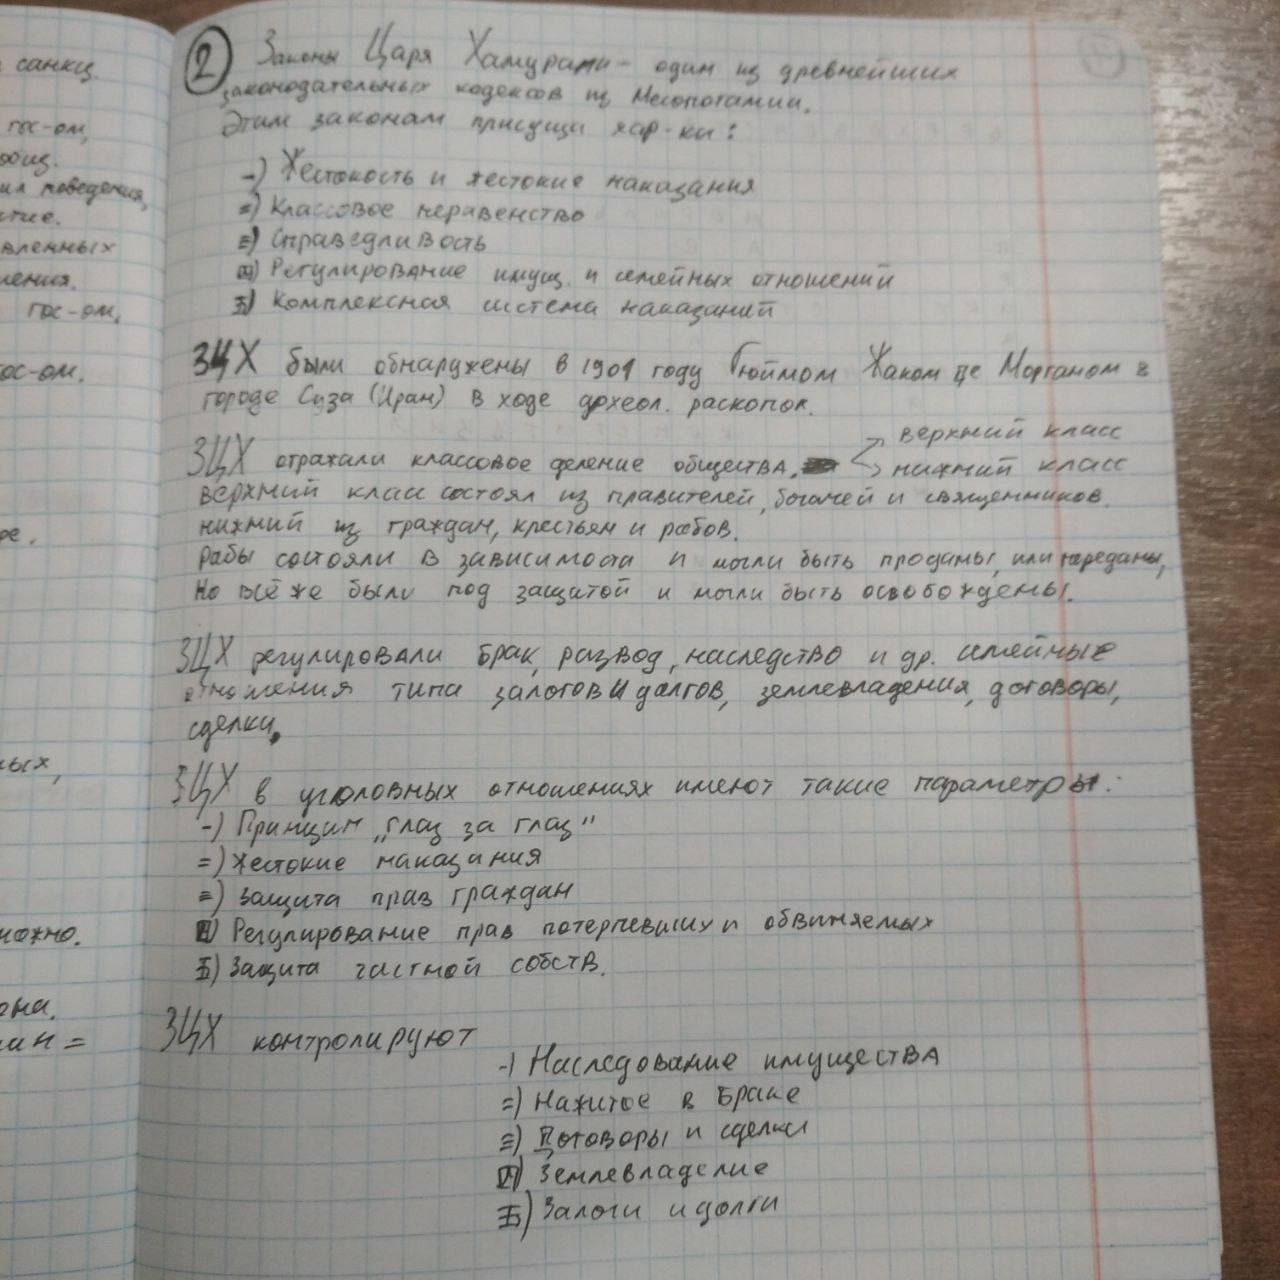 санкц.
гос-ом,
общ.
ил поведения,
тие.
вленных
ления.
гос-ом,
ос-ом.
ре.
ных,
можно.
она.
ин =
2 Законы Царя Хамурапи - один из древнейших
законодательных кодексов из Месопотамии.
Этим законам присущи хар-ки:
一) Жестокость и жестокие наказания
二) Классовое неравенство
三) Справедливость
四) Регулирование имущ. и семейных отношений
五) Комплексная система наказаний
ЗЦХ были обнаружены в 1901 году Гюймом Жаком де Морганом в
городе Суза (Иран) в ходе археол. раскопок.
верхний класс
ЗЦХ отражали классовое деление общества. нижний класс
верхний клас состоял из правителей, богачей и священников.
нижний из граждан, крестьян и рабов.
рабы состояли в зависимости и могли быть проданы, или переданы,
Но всё же были под защитой и могли быть освобождены.
ЗЦХ регулировали брак, развод, наследство и др. семейные
отношения типа залогов и долгов, землевладения, договоры,
сделки.
ЗЦХ в уголовных отношениях имеют такие параметры:
一) Принцип „глаз за глаз"
二) жестокие наказания
三) защита прав граждан
四) Регулирование прав потерпевших и обвиняемых
五) Защита частной собств.
ЗЦХ контролируют
一) Наследование имущества
二) Нажитое в браке
三) Договоры и сделки
四) Землевладелие
五) Залоги и долги